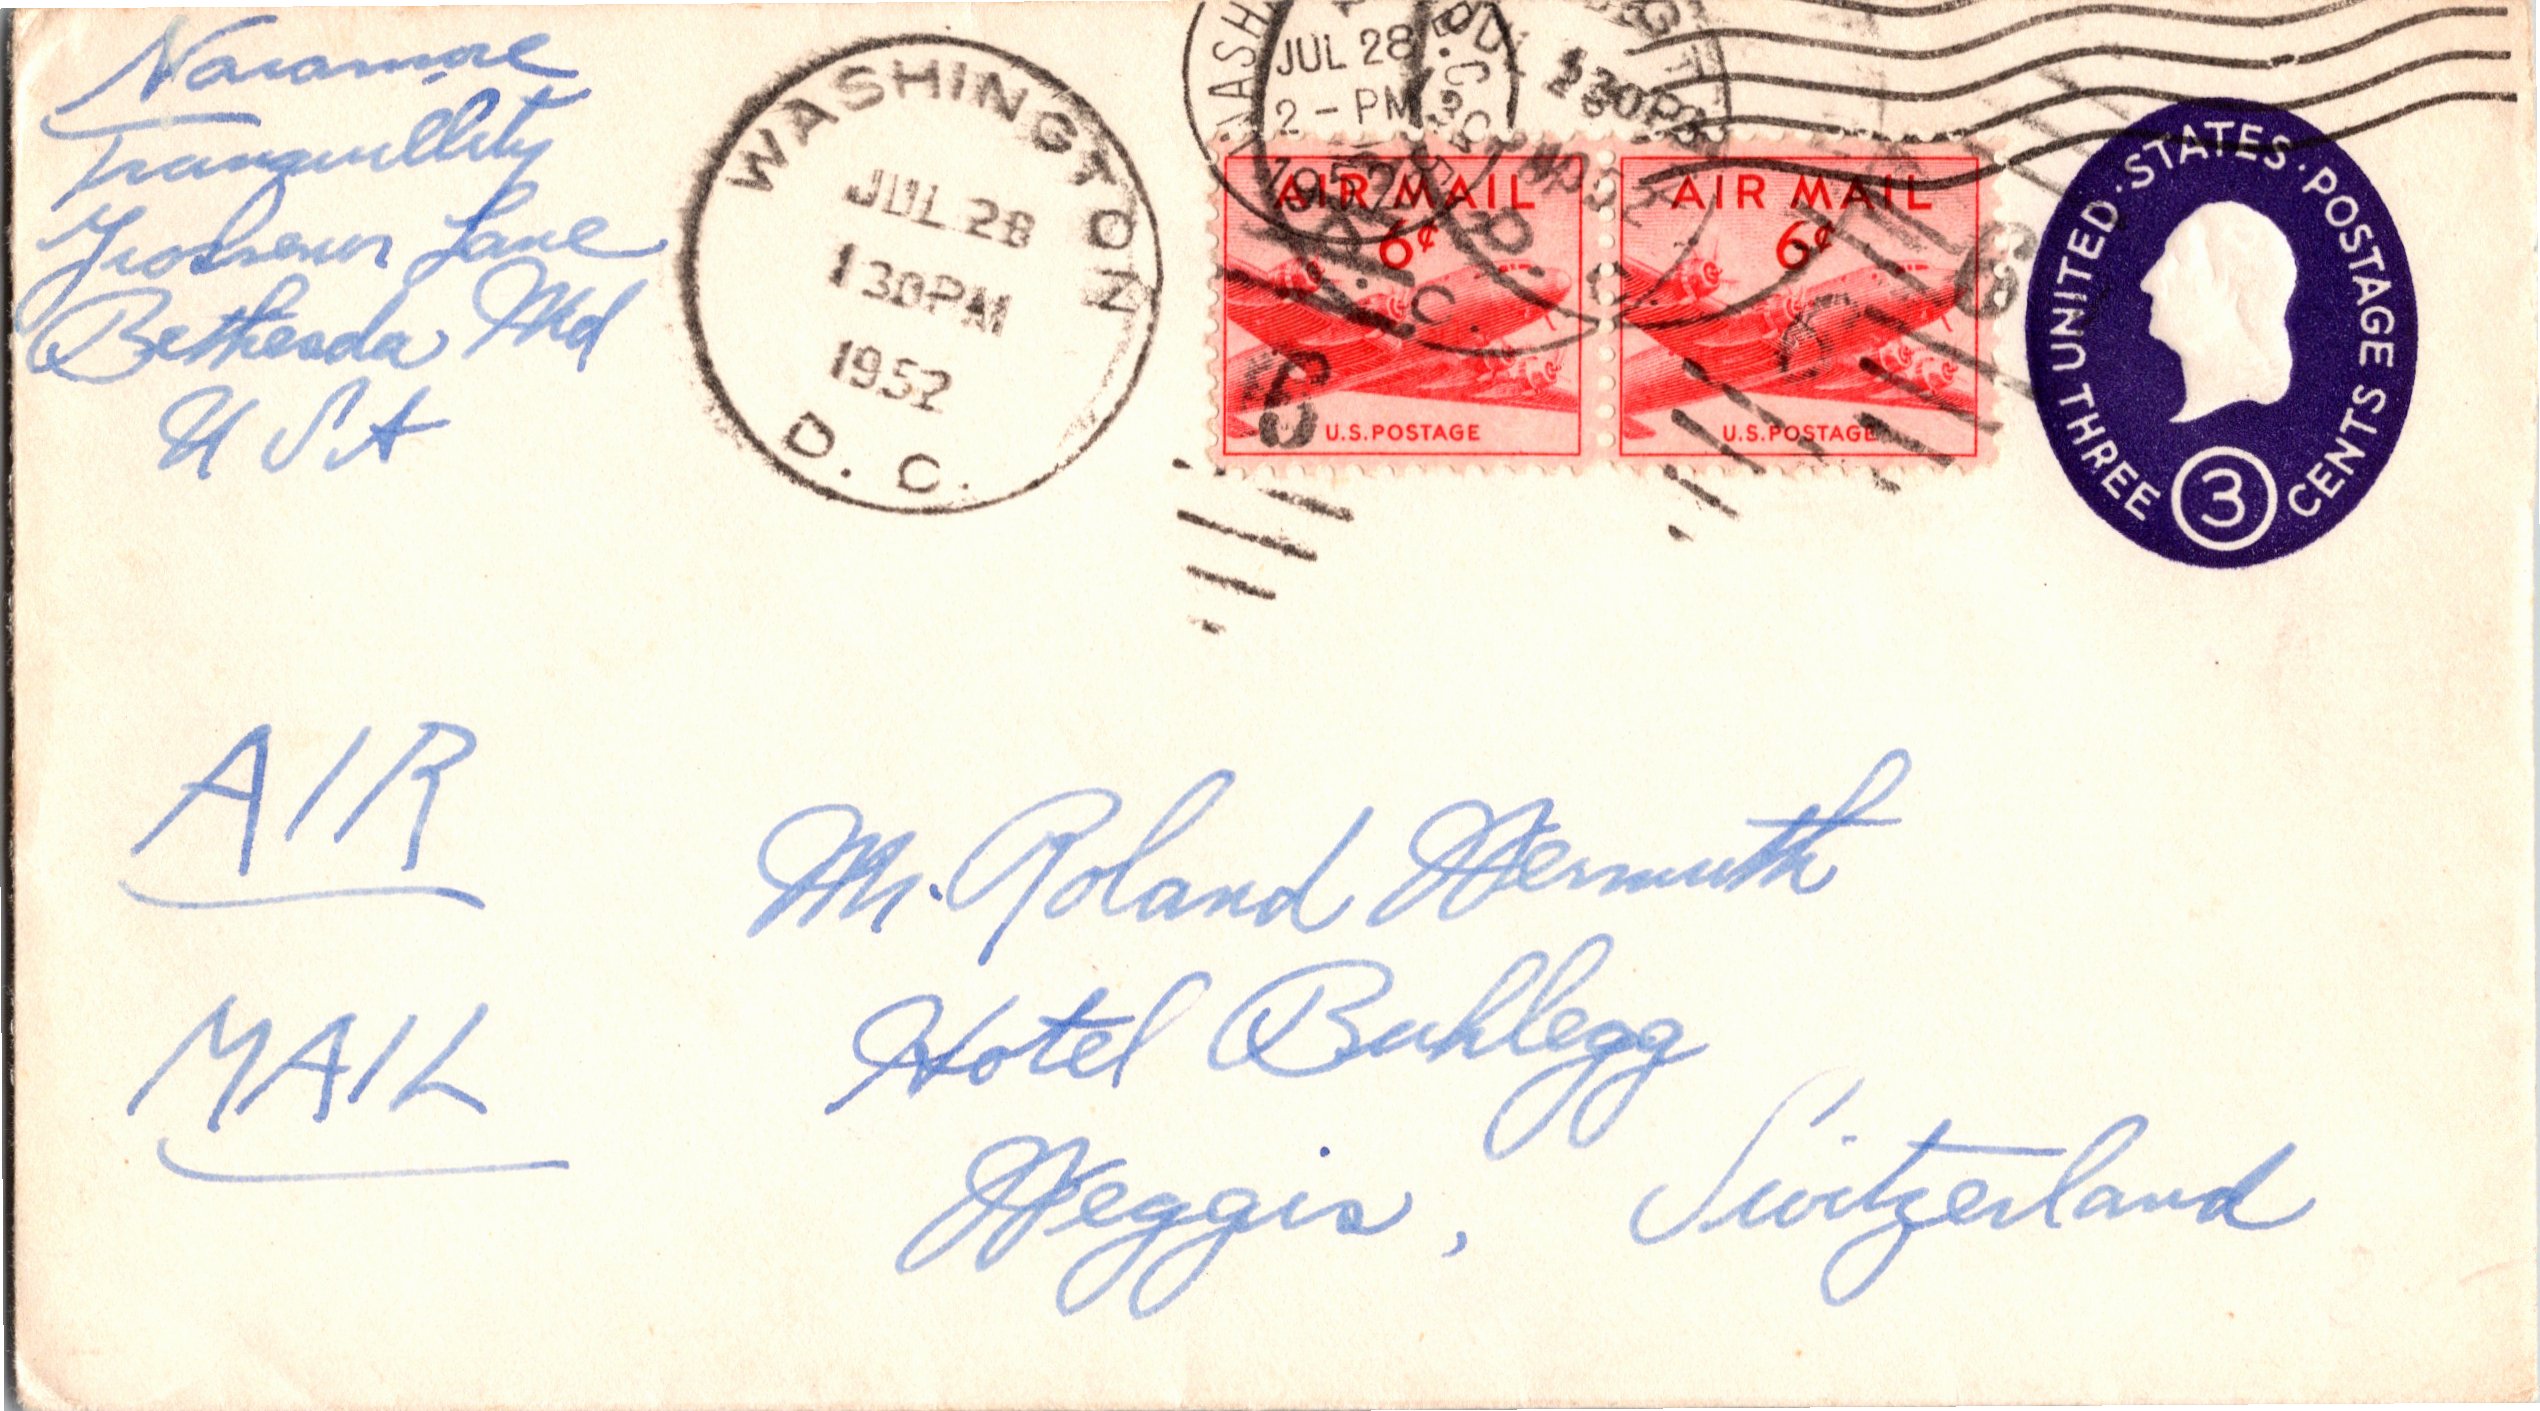 Naramore
Tranquillity
Grosvenor Lane
Bethesda Md
U S A
WASHINGTON
JUL 28
1 30 PM
1952
D. C.
WASH
JUL 28
2 - PM
1952
D. C.
AIR MAIL
6¢
U.S. POSTAGE
AIR MAIL
6¢
U.S. POSTAGE
UNITED · STATES · POSTAGE
THREE 3 CENTS
AIR
MAIL
Mr. Roland Wermuth
Hotel Buhlegg
Weggis, Switzerland